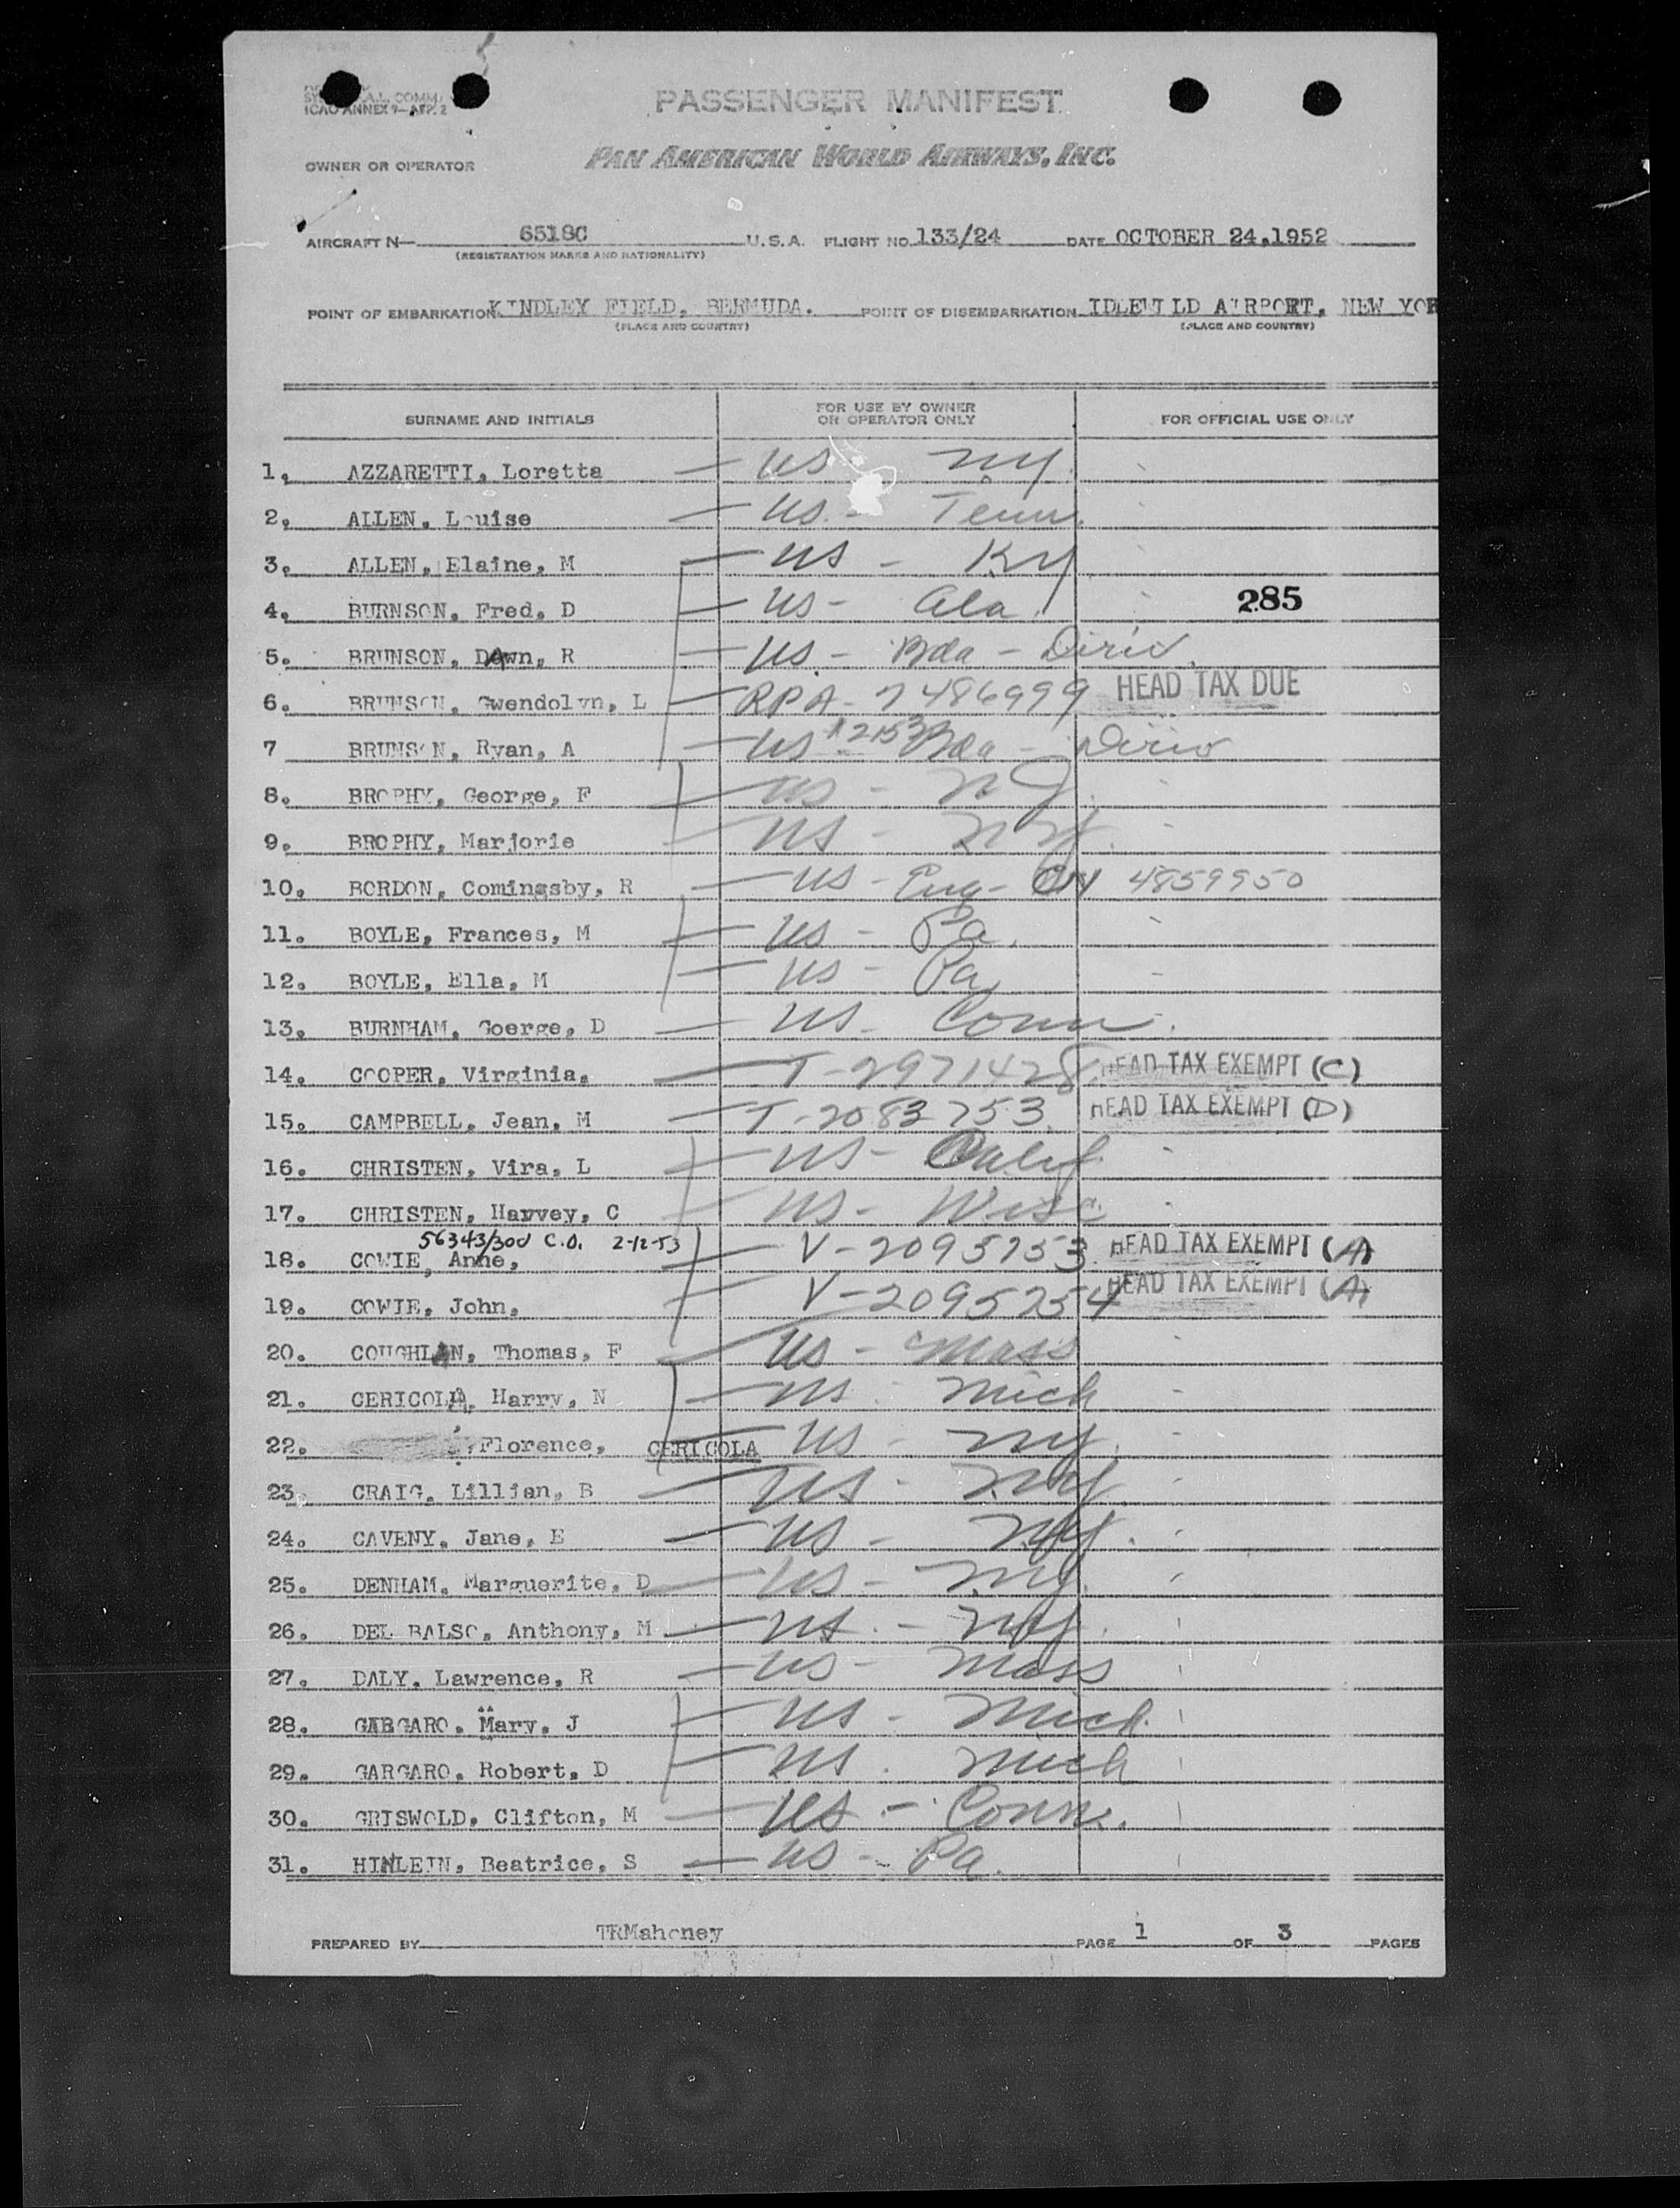 ICAO ANNEX 9—APP. 2
PASSENGER MANIFEST
OWNER OR OPERATOR PAN AMERICAN WORLD AIRWAYS, INC.
AIRCRAFT N— 6518C U.S.A. FLIGHT NO. 133/24 DATE OCTOBER 24,1952
(REGISTRATION MARKS AND NATIONALITY)
POINT OF EMBARKATION KINDLEY FIELD, BERMUDA. POINT OF DISEMBARKATION IDLEWILD AIRPORT, NEW YOR
(PLACE AND COUNTRY) (PLACE AND COUNTRY)
SURNAME AND INITIALS FOR USE BY OWNER OR OPERATOR ONLY FOR OFFICIAL USE ONLY
1. AZZARETTI, Loretta — US NY.
2. ALLEN, Louise — US - Tenn.
3. ALLEN, Elaine, M — US - Ky
4. BURNSON, Fred, D — US - Ala. 285
5. BRUNSON, DAwn, R — US - Bda - Deriv.
6. BRUNSON, Gwendolyn, L — RPA - 7486999 HEAD TAX DUE
7 BRUNSON, Ryan, A — US Bda - Deriv
8. BROPHY, George, F — US - NJ.
9. BROPHY, Marjorie — US - NY.
10. BORDON, Comingsby, R — US - Eng - CN 4859950
11. BOYLE, Frances, M — US - Pa.
12. BOYLE, Ella, M — US - Pa
13. BURNHAM, Goerge, D — US - Conn.
14. COOPER, Virginia, — T-2971428 HEAD TAX EXEMPT (C)
15. CAMPBELL, Jean, M — T-2083753 HEAD TAX EXEMPT (D)
16. CHRISTEN, Vira, L — US - Calif.
17. CHRISTEN, Harvey, C — US - Wisc
56343/300 C.O. 2-12-53
18. COWIE, Anne, — V-2095253 HEAD TAX EXEMPT (A)
19. COWIE, John, — V-2095254 HEAD TAX EXEMPT (A)
20. COUGHLAN, Thomas, F — US - Mass
21. CERICOLA, Harry, N — US - Mich
22. , Florence, CERICOLA — US - NY.
23. CRAIG, Lillian, B — US - NY.
24. CAVENY, Jane, E — US - NY.
25. DENHAM, Marguerite, D — US - NY.
26. DEL BALSO, Anthony, M — US - NY.
27. DALY, Lawrence, R — US - Mass
28. GARGARO, Mary, J — US - Mich.
29. GARGARO, Robert, D — US - Mich
30. GRISWOLD, Clifton, M — US - Conn.
31. HINLEIN, Beatrice, S — US - Pa.
PREPARED BY TRMahoney PAGE 1 OF 3 PAGES